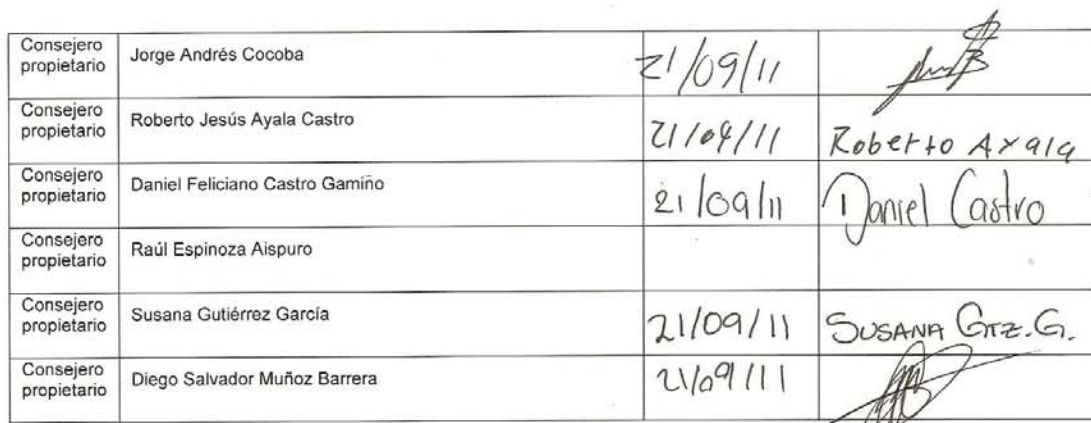 Consejero
propietario
Jorge Andrés Cocoba
21/09/11
Consejero
propietario
Roberto Jesús Ayala Castro
21/09/11
Roberto Ayala
Consejero
propietario
Daniel Feliciano Castro Gamiño
21/09/11
Daniel Castro
Consejero
propietario
Raúl Espinoza Aispuro
Consejero
propietario
Susana Gutiérrez García
21/09/11
SUSANA GTZ.G.
Consejero
propietario
Diego Salvador Muñoz Barrera
21/09/11